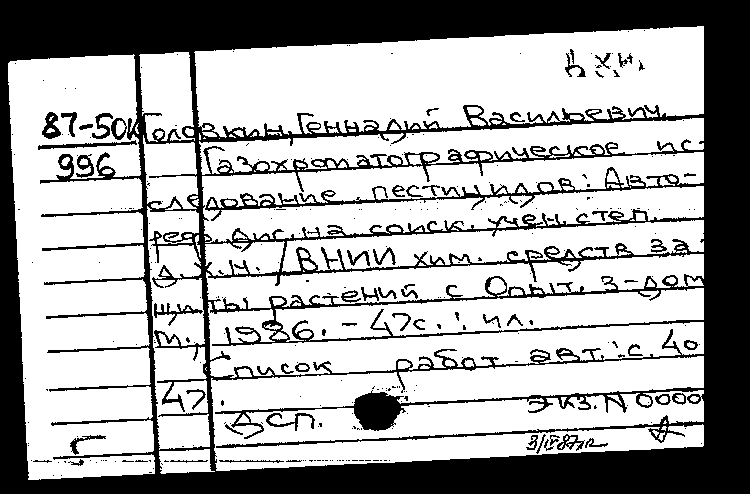 Д.Х.Н.
87-50К Головкин, Геннадий Васильевич.
996 Газохроматографическое ис-
следование пестицидов: Авто-
реф. дис. на соиск. учен. степ.
д.х.н. / ВНИИ хим. средств за-
щиты растений с Опыт. з-дом
М., 1986. - 47 с. : ил.
Список работ авт.: с. 40
47.
ДСП.
Экз. N 0000